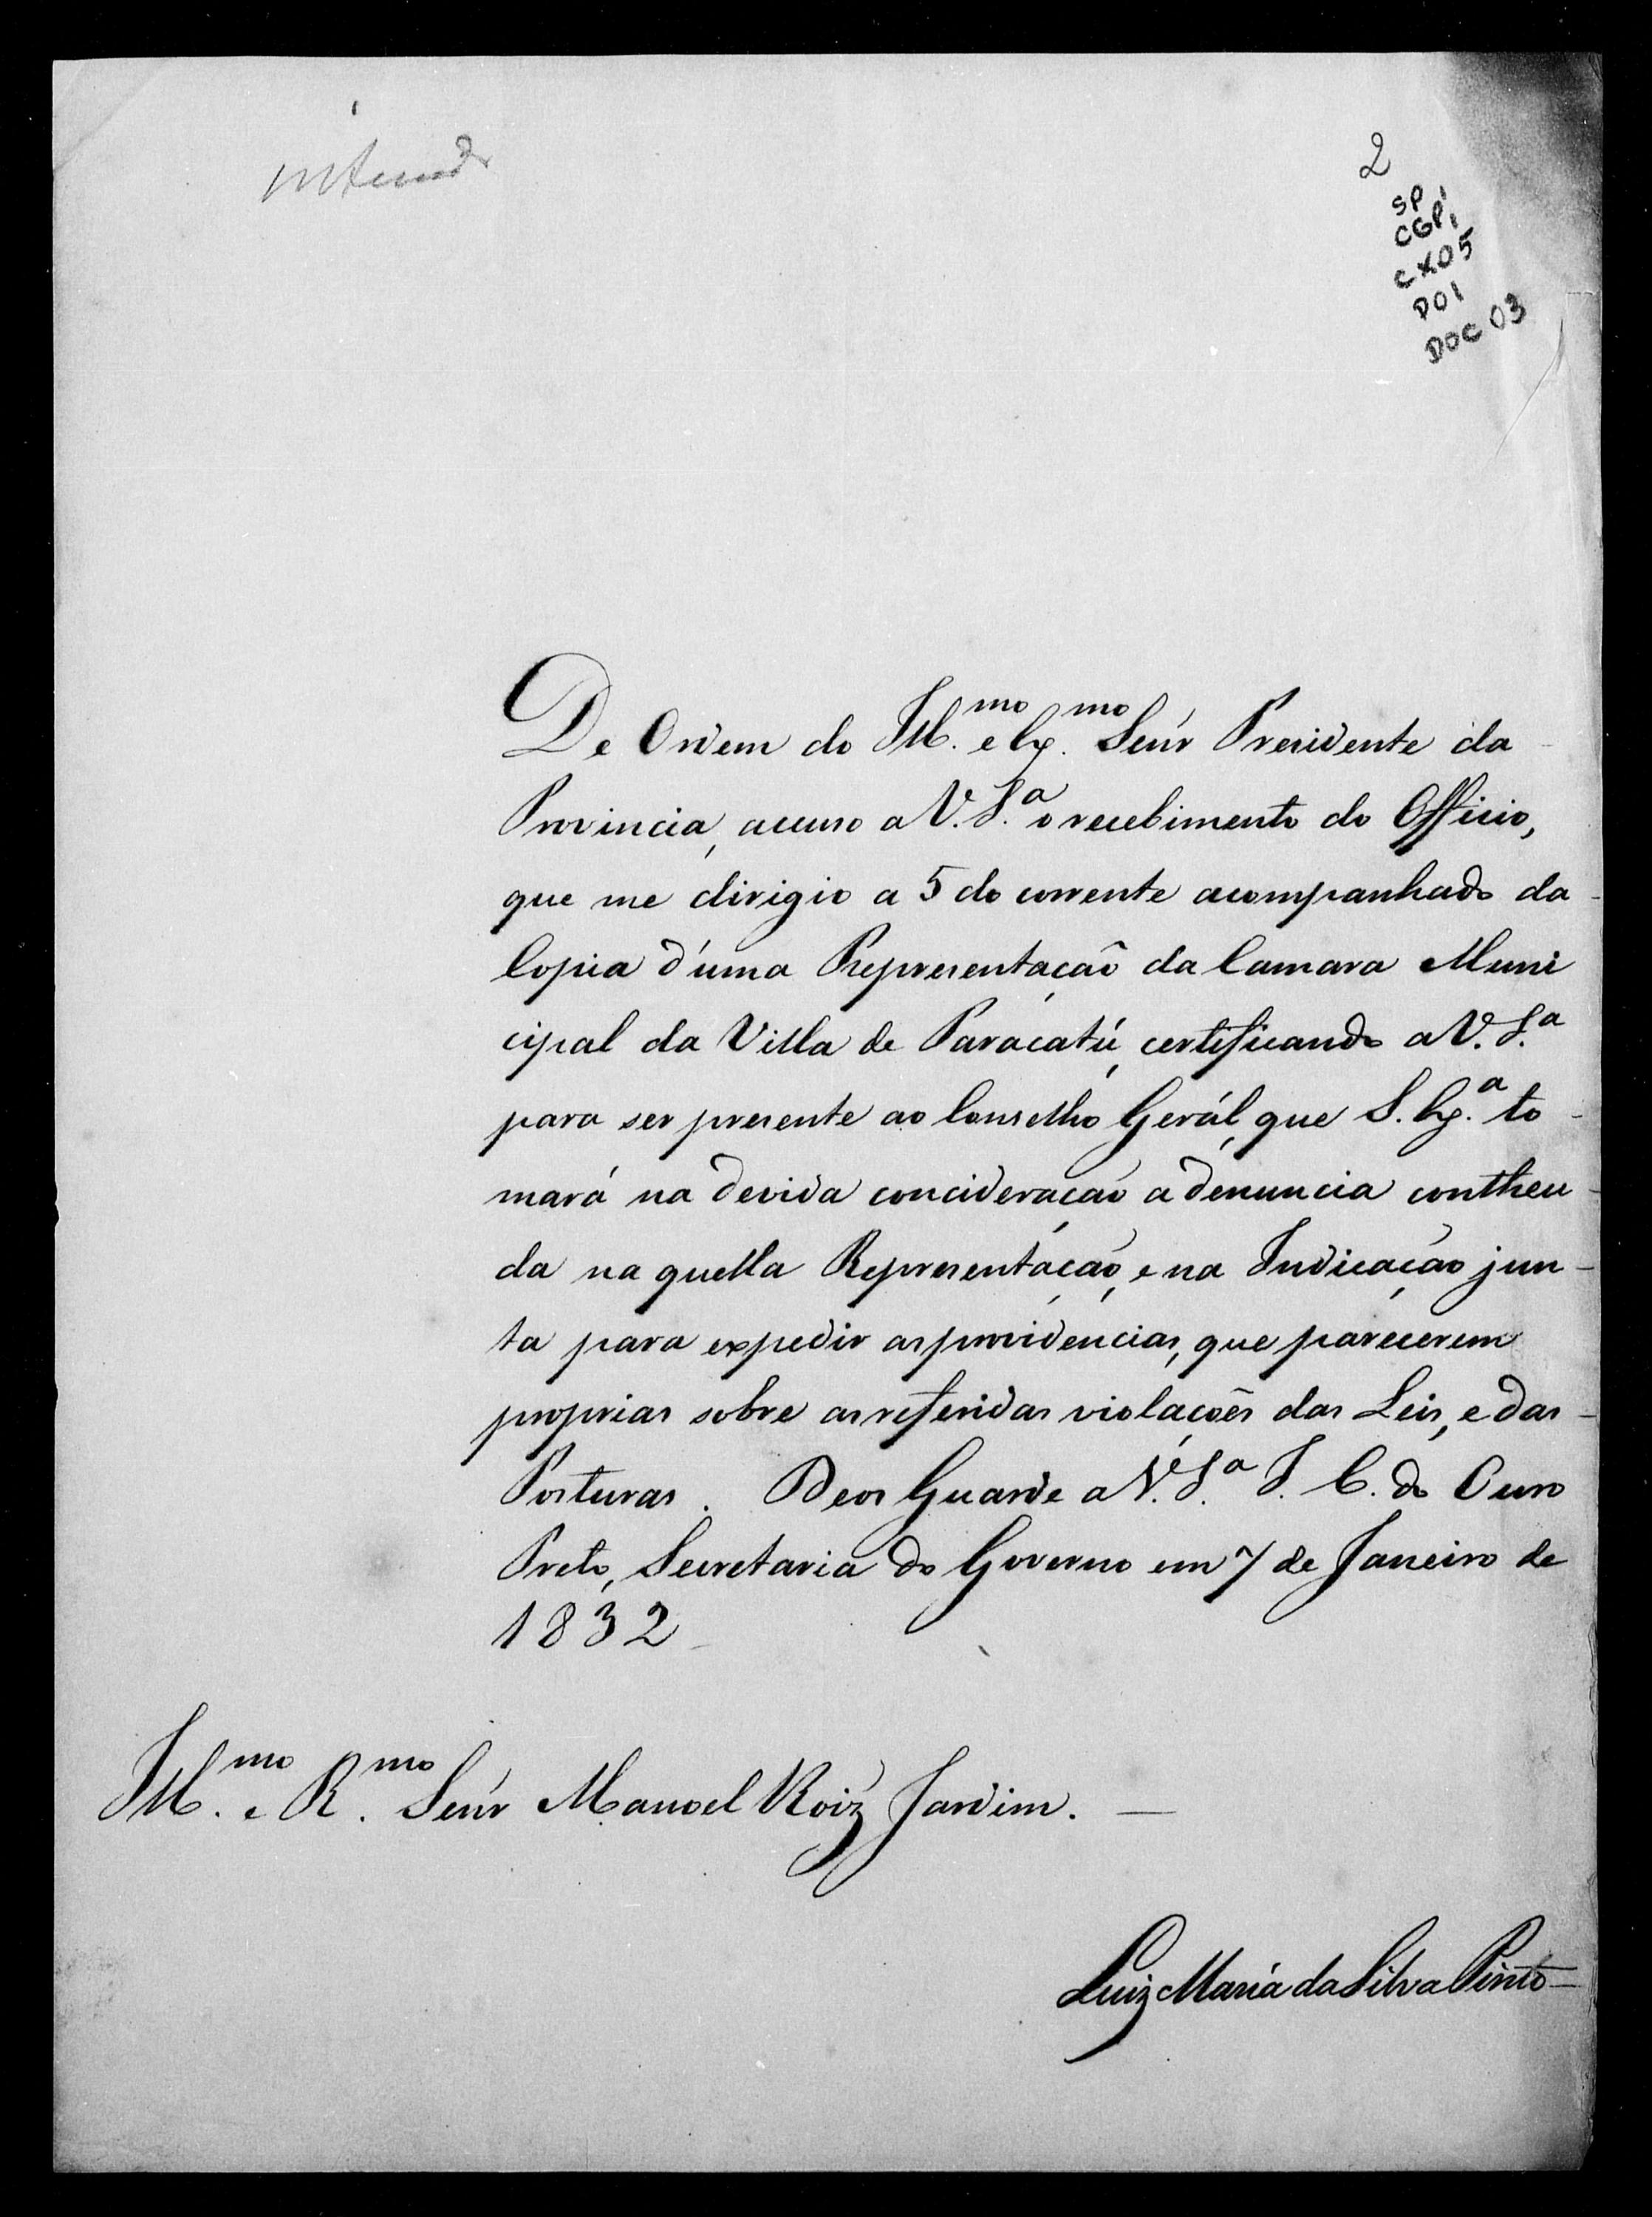 2
SP
CGP1
CX05
D01
DOC 03
De Ordem do Ill.mo e Ex.mo Senr Presidente da
Provincia, accuso a V. S.a o recebimento do Officio,
que me dirigio a 5 do corrente acompanhado da
Copia d'uma Representação da Camara Muni
cipal da Villa de Paracatú, certificando a V. S.a
para ser presente ao Conselho Gerál, que S. Ex.a to
mará na devida concideração a denuncia contheu
da na quella Representação, e na Indicação jun
ta para expedir as providencias, que parecerem
proprias sobre as referidas violações das Leis, e das
Posturas. Deos Guarde a V. S.a I. C. do Ouro
Preto, Secretaria do Governo em 7 de Janeiro de
1832
Ill.mo e R.mo Senr Manoel Roiz Jardim.
Luiz Maria da Silva Pinto